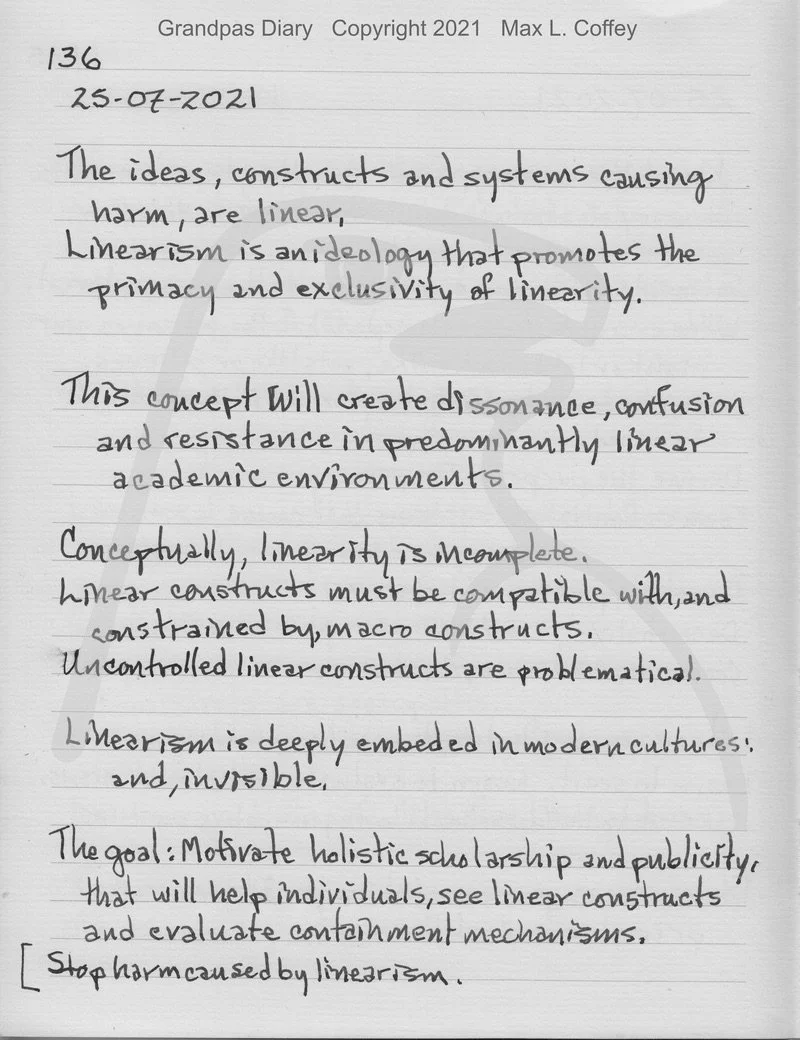 Grandpas Diary Copyright 2021 Max L. Coffey
136
25-07-2021
The ideas, constructs and systems causing
harm, are linear,
Linearism is an ideology that promotes the
primacy and exclusivity of linearity.
This concept will create dissonance, confusion
and resistance in predominantly linear
academic environments.
Conceptually, linearity is incomplete.
Linear constructs must be compatible with, and
constrained by, macro constructs.
Uncontrolled linear constructs are problematical.
Linearism is deeply embeded in modern cultures:
and, invisible.
The goal: Motivate holistic scholarship and publicity,
that will help individuals, see linear constructs
and evaluate containment mechanisms.
[ Stop harm caused by linearism.